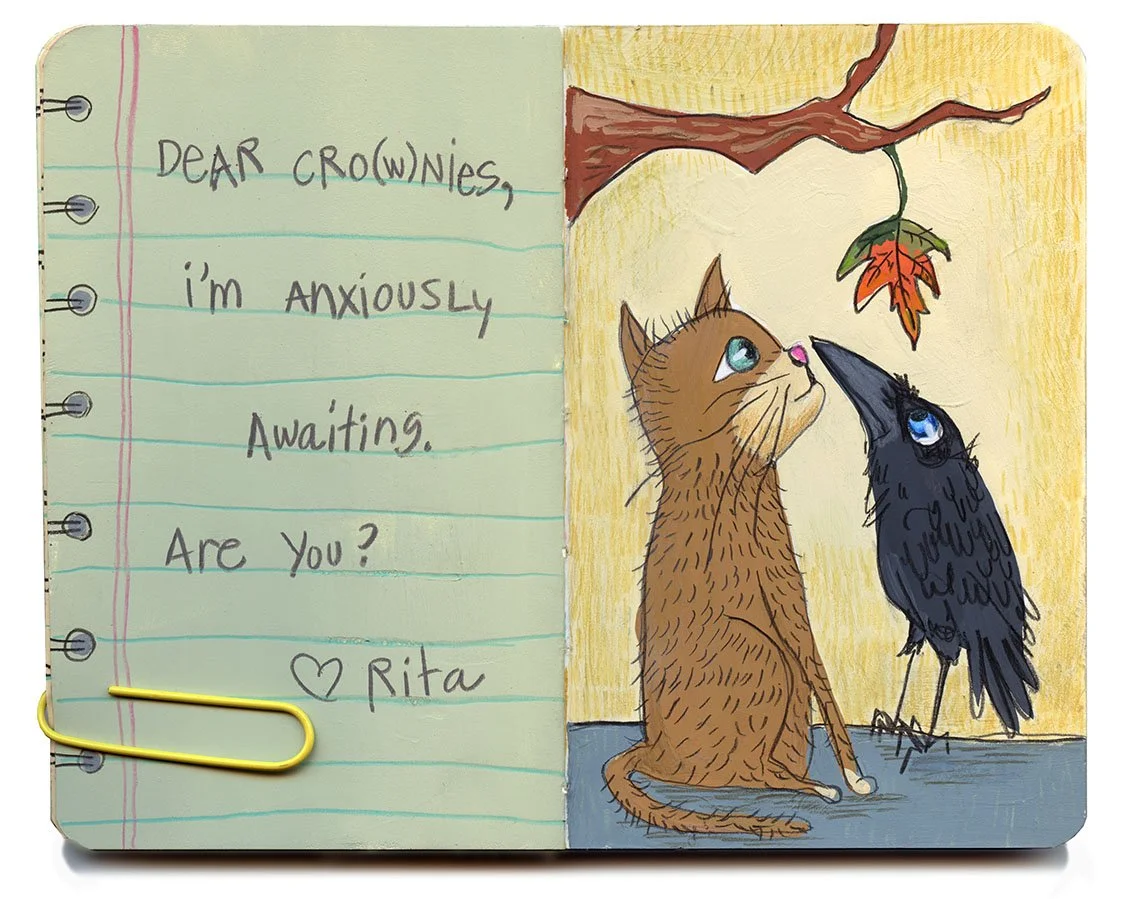 DeAR CRO(w)Nies,
i'm ANXiOUSLy
Awaiting.
Are you?
♡ Rita